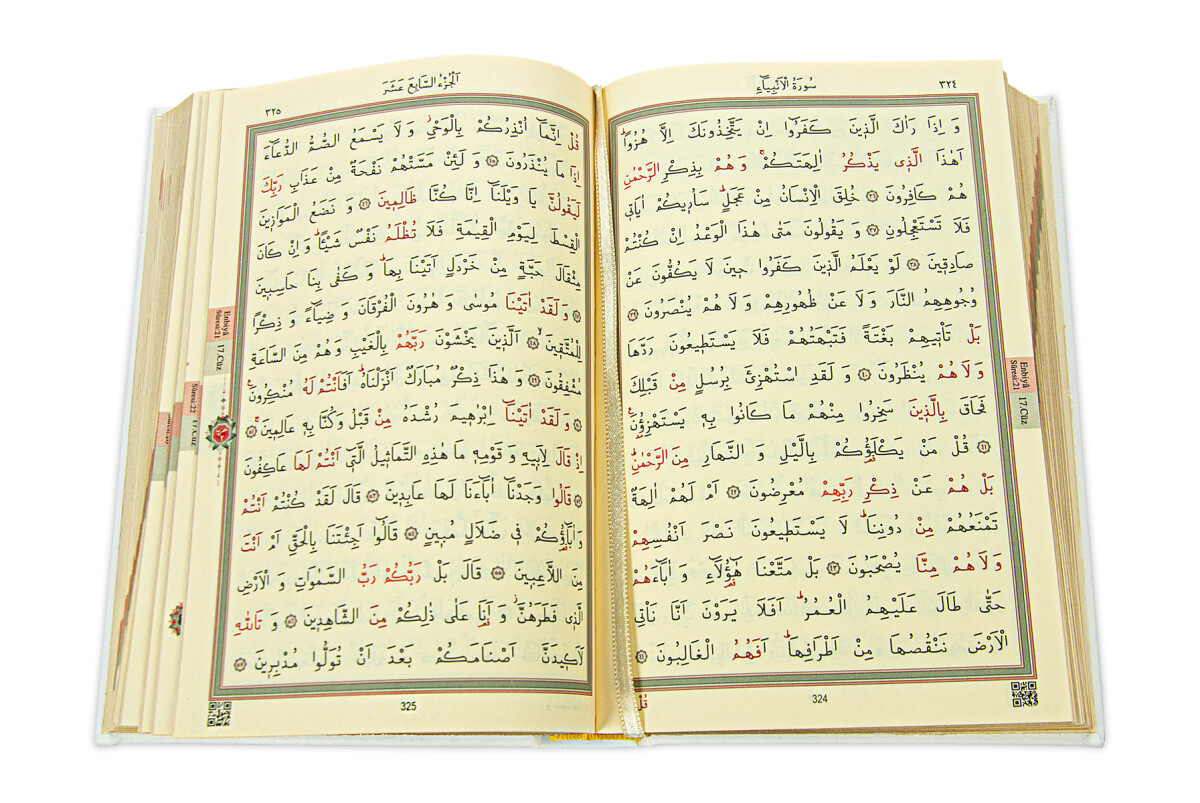 سُورَةُ الْاَنْبِيَٓاءِ
٣٢٤
وَ اِذَا رَاٰكَ الَّذٖينَ كَفَرُٓوا اِنْ يَتَّخِذُونَكَ اِلَّا هُزُوًاۜ
اَهٰذَا الَّذٖى يَذْكُرُ اٰلِهَتَكُمْۚ وَ هُمْ بِذِكْرِ الرَّحْمٰنِ
هُمْ كَافِرُونَ ﴿٣٦﴾ خُلِقَ الْاِنْسَانُ مِنْ عَجَلٍۜ سَاُرٖيكُمْ اٰيَاتٖى
فَلَا تَسْتَعْجِلُونِ ﴿٣٧﴾ وَ يَقُولُونَ مَتٰى هٰذَا الْوَعْدُ اِنْ كُنْتُمْ
صَادِقٖينَ ﴿٣٨﴾ لَوْ يَعْلَمُ الَّذٖينَ كَفَرُوا حٖينَ لَا يَكُفُّونَ عَنْ
وُجُوهِهِمُ النَّارَ وَ لَا عَنْ ظُهُورِهِمْ وَ لَا هُمْ يُنْصَرُونَ ﴿٣٩﴾
بَلْ تَاْتٖيهِمْ بَغْتَةً فَتَبْهَتُهُمْ فَلَا يَسْتَطٖيعُونَ رَدَّهَا
وَ لَا هُمْ يُنْظَرُونَ ﴿٤٠﴾ وَ لَقَدِ اسْتُهْزِئَ بِرُسُلٍ مِنْ قَبْلِكَ
فَحَاقَ بِالَّذٖينَ سَخِرُوا مِنْهُمْ مَا كَانُوا بِهٖ يَسْتَهْزِؤُنَ۟
﴿٤١﴾ قُلْ مَنْ يَكْلَؤُ۬كُمْ بِالَّيْلِ وَ النَّهَارِ مِنَ الرَّحْمٰنِۜ
بَلْ هُمْ عَنْ ذِكْرِ رَبِّهِمْ مُعْرِضُونَ ﴿٤٢﴾ اَمْ لَهُمْ اٰلِهَةٌ
تَمْنَعُهُمْ مِنْ دُونِنَاۜ لَا يَسْتَطٖيعُونَ نَصْرَ اَنْفُسِهِمْ
وَ لَا هُمْ مِنَّا يُصْحَبُونَ ﴿٤٣﴾ بَلْ مَتَّعْنَا هٰٓؤُ۬لَٓاءِ وَ اٰبَٓاءَهُمْ
حَتّٰى طَالَ عَلَيْهِمُ الْعُمُرُۜ اَفَلَا يَرَوْنَ اَنَّا نَاْتِى
الْاَرْضَ نَنْقُصُهَا مِنْ اَطْرَافِهَاۜ اَفَهُمُ الْغَالِبُونَ ﴿٤٤﴾
قُلْ
324
Enbiyâ
Sûresi:21
17.Cüz
اَلْجُزْءُ السَّابِعَ عَشَرَ
٣٢٥
قُلْ اِنَّمَٓا اُنْذِرُكُمْ بِالْوَحْىِۘ وَ لَا يَسْمَعُ الصُّمُّ الدُّعَٓاءَ
اِذَا مَا يُنْذَرُونَ ﴿٤٥﴾ وَ لَئِنْ مَسَّتْهُمْ نَفْحَةٌ مِنْ عَذَابِ رَبِّكَ
لَيَقُولُنَّ يَا وَيْلَنَٓا اِنَّا كُنَّا ظَالِمٖينَ ﴿٤٦﴾ وَ نَضَعُ الْمَوَازٖينَ
الْقِسْطَ لِيَوْمِ الْقِيٰمَةِ فَلَا تُظْلَمُ نَفْسٌ شَيْئًاۜ وَ اِنْ كَانَ
مِثْقَالَ حَبَّةٍ مِنْ خَرْدَلٍ اَتَيْنَا بِهَاۜ وَ كَفٰى بِنَا حَاسِبٖينَ
﴿٤٧﴾ وَ لَقَدْ اٰتَيْنَا مُوسٰى وَ هٰرُونَ الْفُرْقَانَ وَ ضِيَٓاءً وَ ذِكْرًا
لِلْمُتَّقٖينَۙ ﴿٤٨﴾ اَلَّذٖينَ يَخْشَوْنَ رَبَّهُمْ بِالْغَيْبِ وَ هُمْ مِنَ السَّاعَةِ
مُشْفِقُونَ ﴿٤٩﴾ وَ هٰذَا ذِكْرٌ مُبَارَكٌ اَنْزَلْنَاهُۜ اَفَاَنْتُمْ لَهُ مُنْكِرُونَ۟
﴿٥٠﴾ وَ لَقَدْ اٰتَيْنَٓا اِبْرٰهٖيمَ رُشْدَهُ مِنْ قَبْلُ وَ كُنَّا بِهٖ عَالِمٖينَۚ ﴿٥١﴾
اِذْ قَالَ لِاَبٖيهِ وَ قَوْمِهٖ مَا هٰذِهِ التَّمَاثٖيلُ الَّتٖٓى اَنْتُمْ لَهَا عَاكِفُونَ
﴿٥٢﴾ قَالُوا وَجَدْنَٓا اٰبَٓاءَنَا لَهَا عَابِدٖينَ ﴿٥٣﴾ قَالَ لَقَدْ كُنْتُمْ اَنْتُمْ
وَ اٰبَٓاؤُ۬كُمْ فٖى ضَلَالٍ مُبٖينٍ ﴿٥٤﴾ قَالُٓوا اَجِئْتَنَا بِالْحَقِّ اَمْ اَنْتَ
مِنَ اللَّاعِبٖينَ ﴿٥٥﴾ قَالَ بَلْ رَبُّكُمْ رَبُّ السَّمٰوَاتِ وَ الْاَرْضِ
الَّذٖى فَطَرَهُنَّۘ وَ اَنَا۬ عَلٰى ذٰلِكُمْ مِنَ الشَّاهِدٖينَ ﴿٥٦﴾ وَ تَاللّٰهِ
لَاَكٖيدَنَّ اَصْنَامَكُمْ بَعْدَ اَنْ تُوَلُّوا مُدْبِرٖينَ ﴿٥٧﴾
325
Enbiyâ
Sûresi:21
17.Cüz
Sûresi:22
17.Cüz